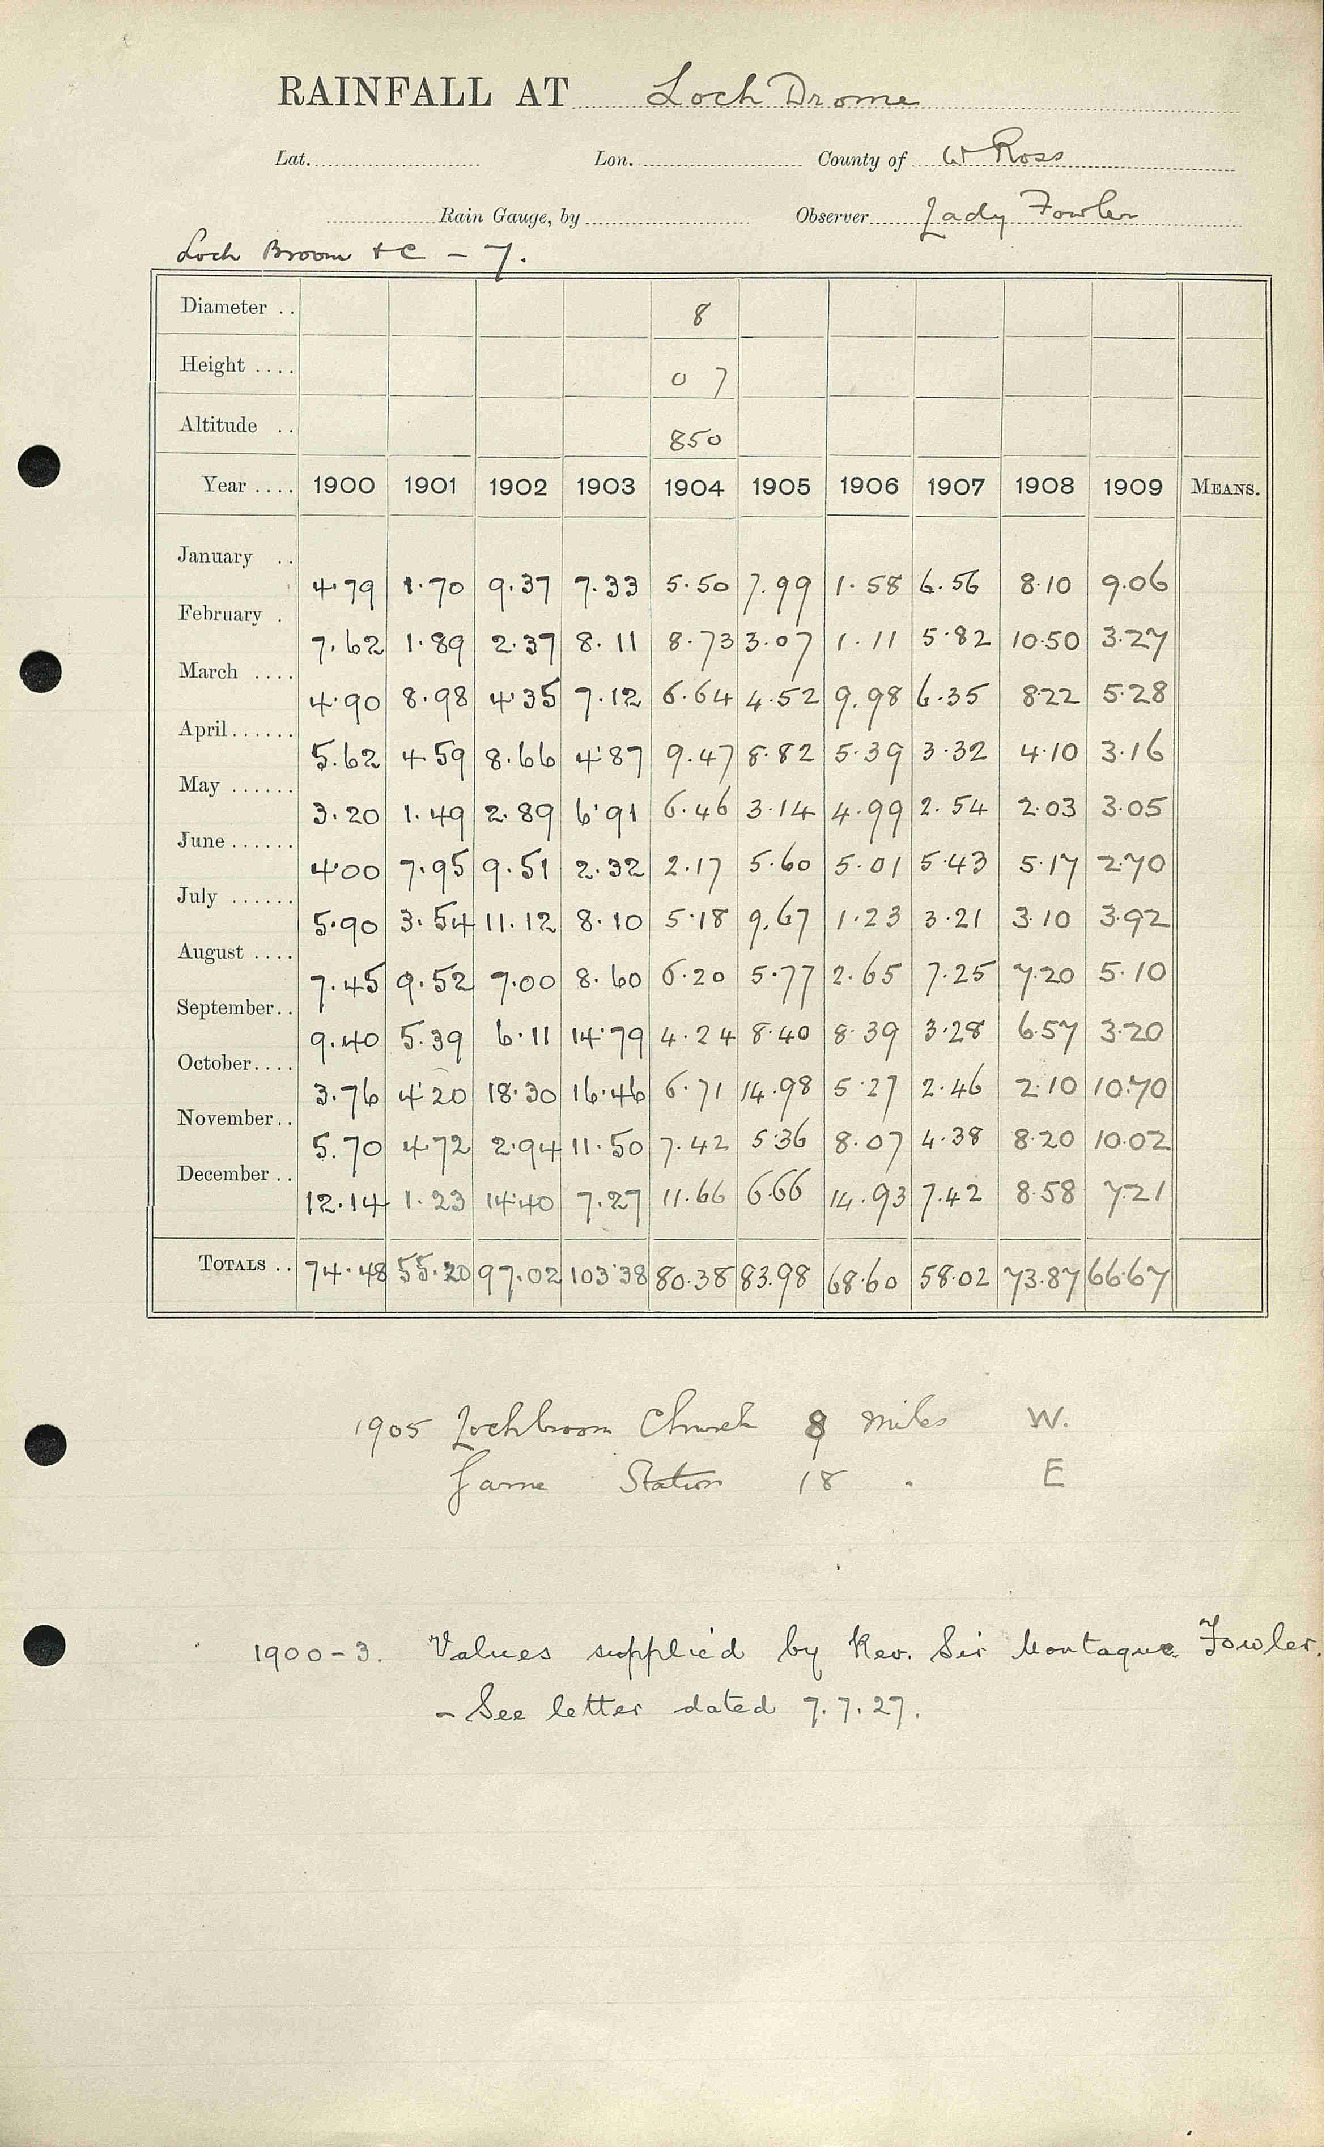 RAINFALL AT Loch Drome
Lat. Lon. County of W Ross
Rain Gauge, by Observer Lady Fowler
Loch Broom &c - 7.
Diameter .. 8
Height .... 0 7
Altitude .. 850
Year .... 1900 1901 1902 1903 1904 1905 1906 1907 1908 1909 MEANS.
January .. 4.79 1.70 9.37 7.33 5.50 7.99 1.58 6.56 8.10 9.06
February . 7.62 1.89 2.37 8.11 8.73 3.07 1.11 5.82 10.50 3.27
March .... 4.90 8.98 4.35 7.12 6.64 4.52 9.98 6.35 8.22 5.28
April...... 5.62 4.59 8.66 4.87 9.47 8.82 5.39 3.32 4.10 3.16
May ...... 3.20 1.49 2.89 6.91 6.46 3.14 4.99 2.54 2.03 3.05
June ...... 4.00 7.95 9.51 2.32 2.17 5.60 5.01 5.43 5.17 2.70
July ...... 5.90 3.54 11.12 8.10 5.18 9.67 1.23 3.21 3.10 3.92
August .... 7.45 9.52 7.00 8.60 6.20 5.77 2.65 7.25 7.20 5.10
September.. 9.40 5.39 6.11 14.79 4.24 8.40 8.39 3.28 6.57 3.20
October.... 3.76 4.20 18.30 16.46 6.71 14.98 5.27 2.46 2.10 10.70
November.. 5.70 4.72 2.94 11.50 7.42 5.36 8.07 4.38 8.20 10.02
December .. 12.14 1.23 14.40 7.27 11.66 6.66 14.93 7.42 8.58 7.21
TOTALS .. 74.48 55.20 97.02 103.38 80.38 83.98 68.60 58.02 73.87 66.67
1905 Lochbroom Church 8 miles W.
Garve Station 18 " E
1900-3. Values supplied by Rev. Sir Montague Fowler.
- See letter dated 7.7.27.